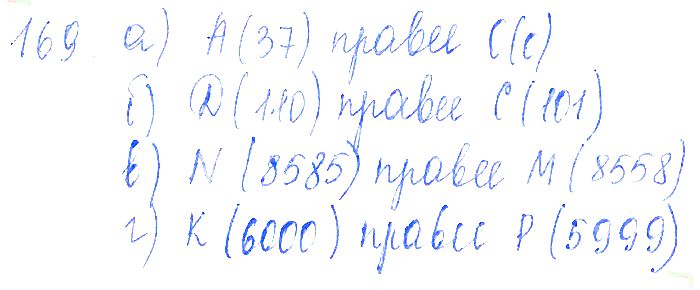 169 а) A(37) правее C(c)
б) D(110) правее C(101)
в) N(8585) правее M(8558)
г) K(6000) правее P(5999)